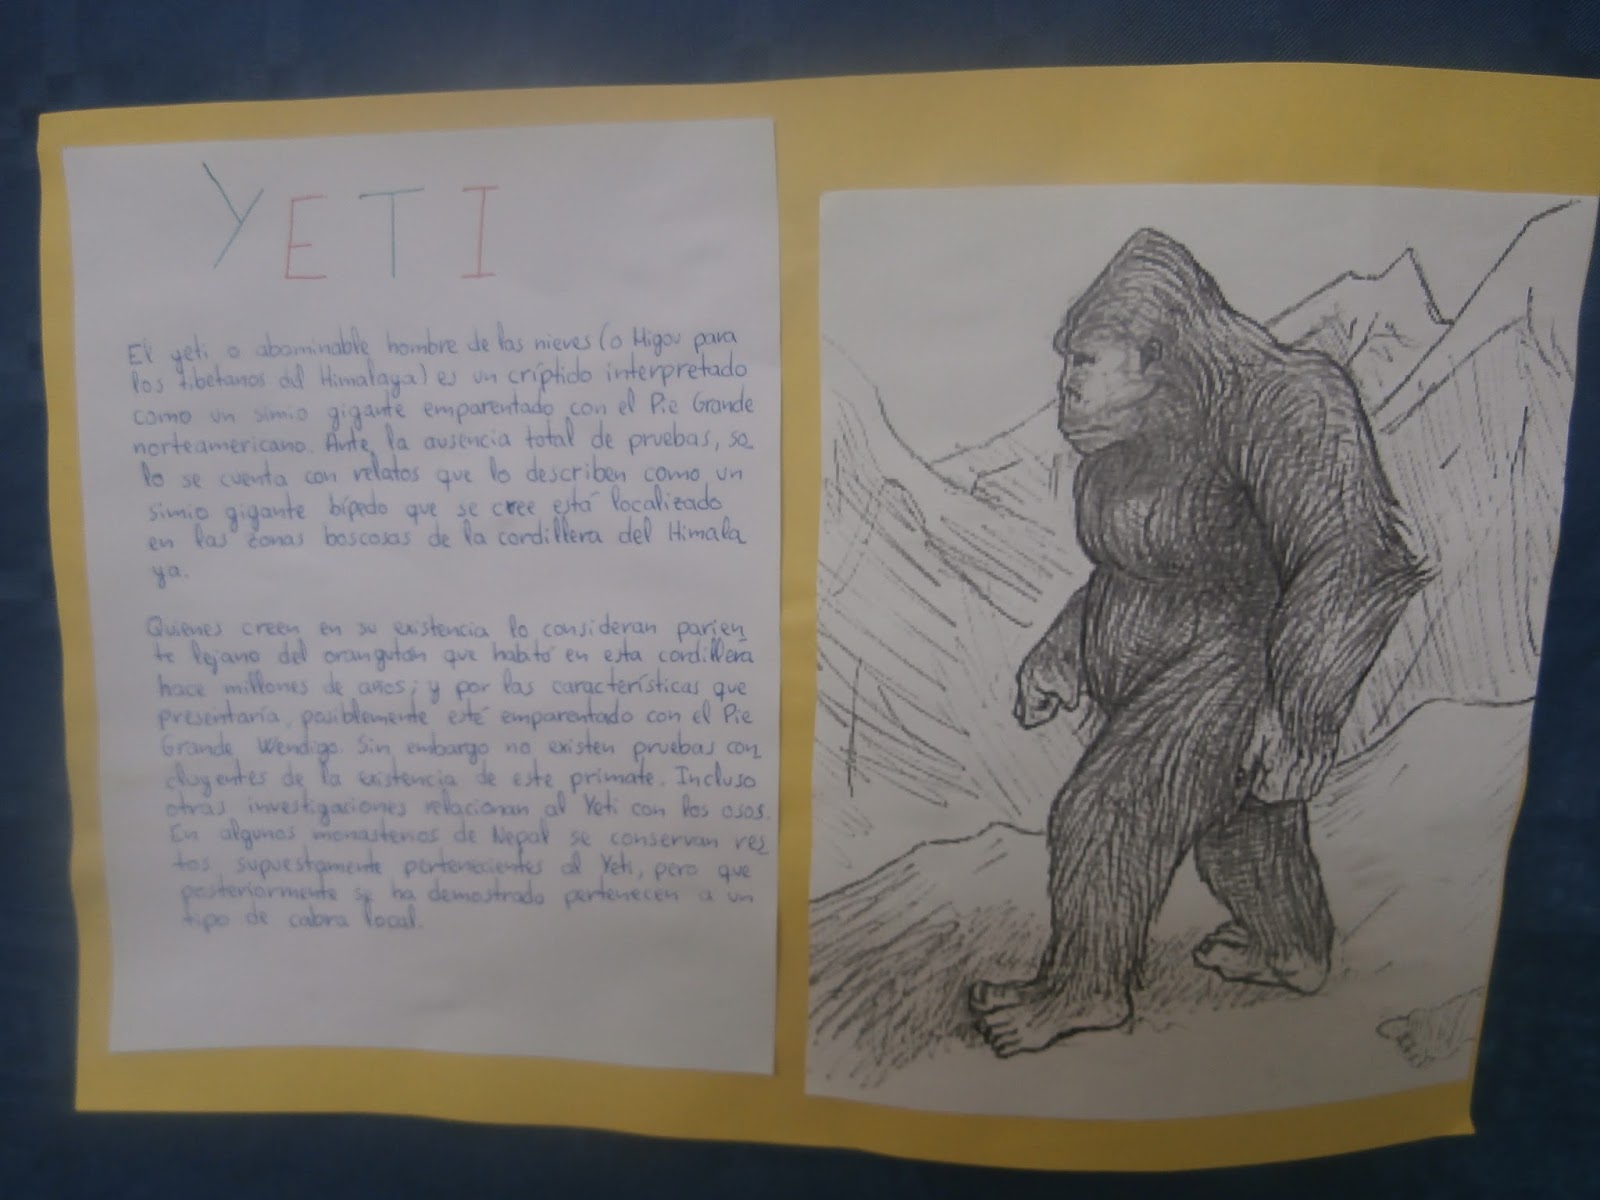 YETI
El yeti o abominable hombre de las nieves (o Migou para
los tibetanos del Himalaya) es un críptido interpretado
como un simio gigante emparentado con el Pie Grande
norteamericano. Ante la ausencia total de pruebas, so
lo se cuenta con relatos que lo describen como un
simio gigante bípedo que se cree está localizado
en las zonas boscosas de la cordillera del Himala
ya.
Quienes creen en su existencia lo consideran parien
te lejano del orangután que habitó en esta cordillera
hace millones de años; y por las características que
presentaría, posiblemente esté emparentado con el Pie
Grande Wendigo. Sin embargo no existen pruebas con
cluyentes de la existencia de este primate. Incluso
otras investigaciones relacionan al Yeti con los osos.
En algunos monasterios de Nepal se conservan res
tos supuestamente pertenecientes al Yeti, pero que
posteriormente se ha demostrado pertenecen a un
tipo de cabra local.